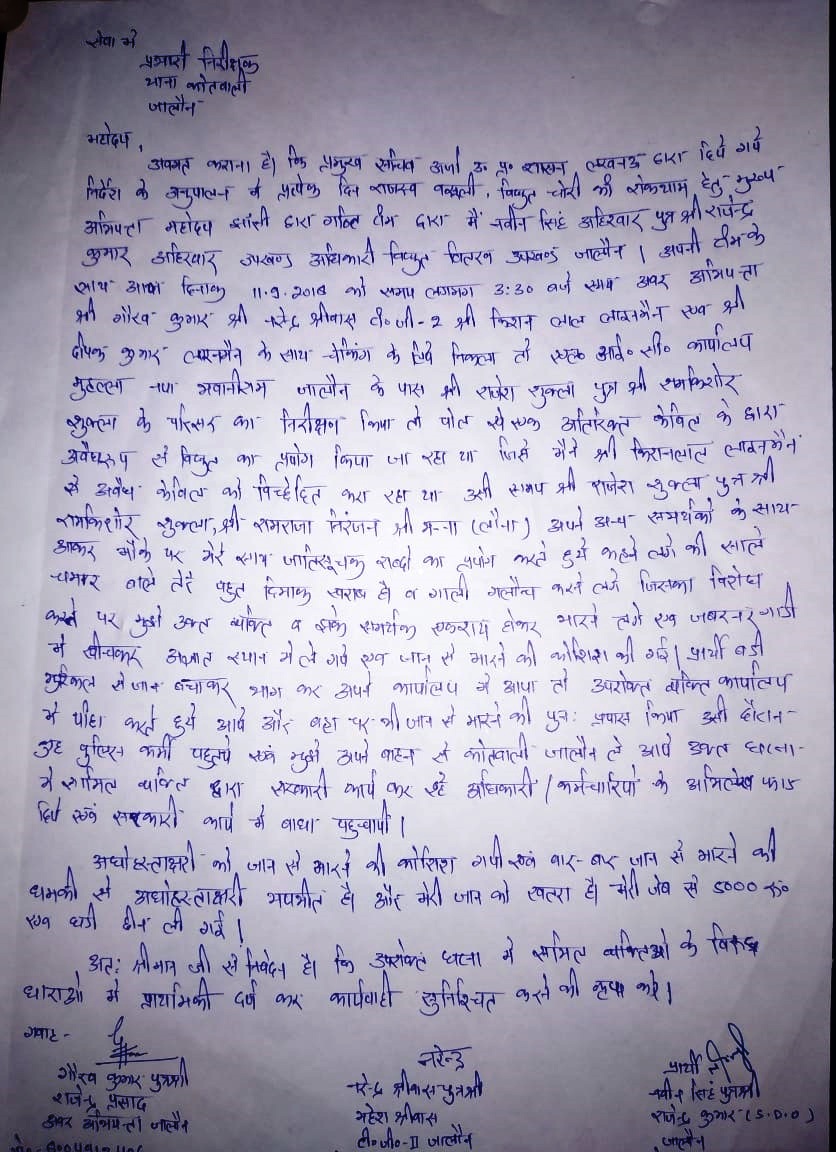 सेवा में
प्रभारी निरीक्षक
थाना कोतवाली
जालौन
महोदय,
अवगत कराना है। कि प्रमुख सचिव ऊर्जा उ० प्र० शासन लखनऊ द्वारा दिये गये
निर्देश के अनुपालन में प्रत्येक दिन राजस्व वसूली, विद्युत चोरी की रोकथाम हेतु मुख्य
अभियन्ता महोदय झांसी द्वारा गठित टीम द्वारा मैं नवीन सिंह अहिरवार पुत्र श्री राजेन्द्र
कुमार अहिरवार उपखण्ड अधिकारी विद्युत वितरण उपखण्ड जालौन। अपनी टीम के
साथ आज दिनांक 11.9.2018 को समय लगभग 3:30 बजे साथ अवर अभियन्ता
श्री गौरव कुमार श्री नरेन्द्र श्रीवास टी०जी-2 श्री किशन लाल लाइनमैन एवं श्री
दीपक कुमार लाइनमैन के साथ चेकिंग के लिये निकला तो एल० आई० सी० कार्यालय
मुहल्ला नया भवानीराम जालौन के पास श्री राजेश शुक्ला पुत्र श्री रामकिशोर
शुक्ला के परिसर का निरीक्षण किया तो पोल से एक अतिरिक्त केबिल के द्वारा
अवैधरूप से विद्युत का प्रयोग किया जा रहा था जिसे मैंने श्री किशनलाल लाइनमैन
से अवैध केबिल को विच्छेदित करा रहा था उसी समय श्री राजेश शुक्ला पुत्र श्री
रामकिशोर शुक्ला, श्री रामराजा निरंजन श्री मन्ना (लौना) अपने अन्य समर्थकों के साथ
आकर मौके पर मेरे साथ जातिसूचक शब्दों का प्रयोग करते हुये कहने लगे की साले
चमार वाले तेरे बहुत दिमाक खराब है। व गाली गलौच करने लगे जिसका विरोध
करने पर मुझे उक्त व्यक्ति व इनके समर्थक एकराय होकर मारने लगे एवं जबरन गाडी
में खीचकर अज्ञात स्थान में ले गये एवं जान से मारने की कोशिश की गई। प्रार्थी बडी
मुश्किल से जान बचाकर भाग कर अपने कार्यालय में आया तो उपरोक्त व्यक्ति कार्यालय
में पीछा करते हुये आये और वहा पर भी जान से मारने की पुनः प्रयास किया उसी दौरान
कुछ पुलिस कर्मी पहुचे एवं मुझे अपने वाहन से कोतवाली जालौन ले आये उक्त घटना
में शामिल व्यक्ति द्वारा सरकारी कार्य कर रहे अधिकारी / कर्मचारियों के अभिलेख फाड
दिये एवं सरकारी कार्य में बाधा पहुचायी।
अधोहस्ताक्षरी को जान से मारने की कोशिश गयी एवं बार-बार जान से मारने की
धमकी से अधोहस्ताक्षरी भयभीत है। और मेरी जान को खतरा है। मेरी जेब से 5000 रू०
एवं घडी छीन ली गई।
अतः श्रीमान जी से निवेदन है। कि उपरोक्त घटना में शामिल व्यक्तिओ के विरूद्ध
धाराओं में प्राथमिकी दर्ज कर कार्यवाही सुनिश्चित करने की कृपा करें।
गवाह-
गौरव कुमार पुत्र श्री
राजेन्द्र प्रसाद
अवर अभियन्ता जालौन
नरेन्द्र
नरेन्द्र श्रीवास पुत्र श्री
महेश श्रीवास
टी०जी०-II जालौन
प्रार्थी
नवीन सिंह पुत्र श्री
राजेन्द्र कुमार (S.D.O)
जालौन